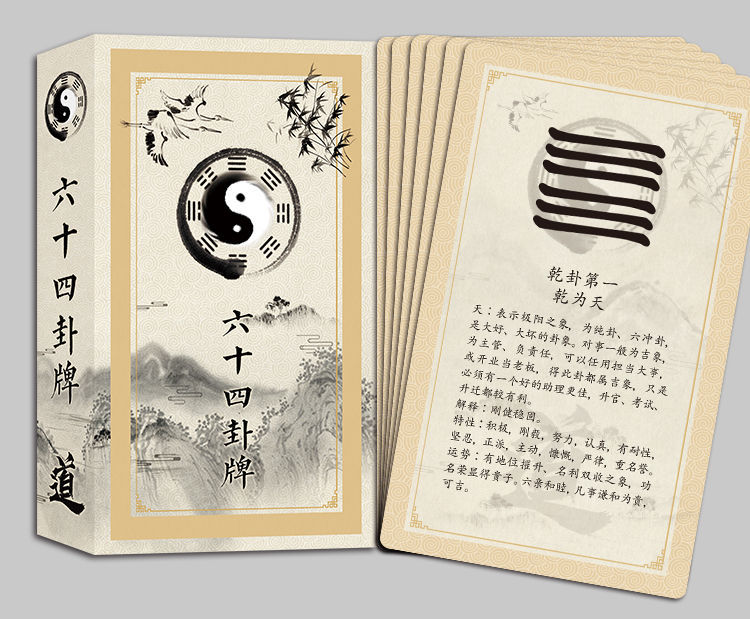 六十四卦牌
道
六十四卦牌
乾卦第一
乾为天
天：表示极阳之象，为纯卦、六冲卦，
是大好、大坏的卦象。对事一般为吉象，
为主管、负责任，可以任用担当大事，
或开业当老板，得此卦都属吉象，只是
必须有一个好的助理更佳，升官、考试、
升迁都较有利。
解释：刚健稳固。
特性：积极，刚毅，努力，认真，有耐性，
坚忍，正派，主动，慷慨，严律，重名誉。
运势：有地位擢升、名利双收之象，功
名荣显得贵子。六亲和睦，凡事谦和为贵，
可吉。